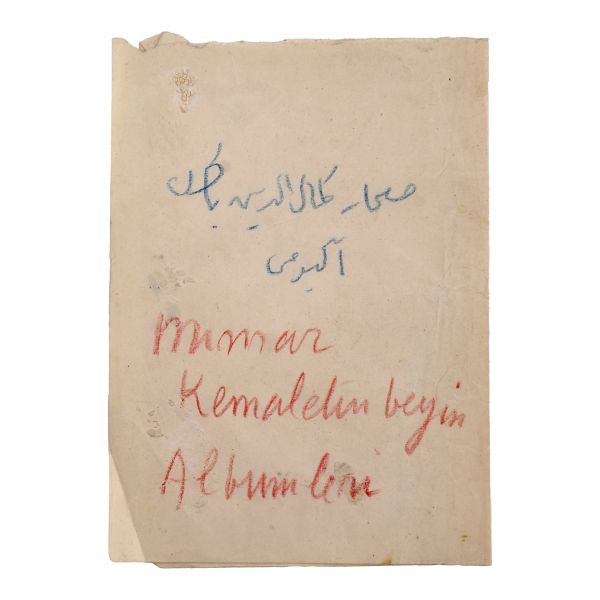 معمار كمال الدين بك
آلبومى
Mimar
Kemaletin beyin
Albümleri